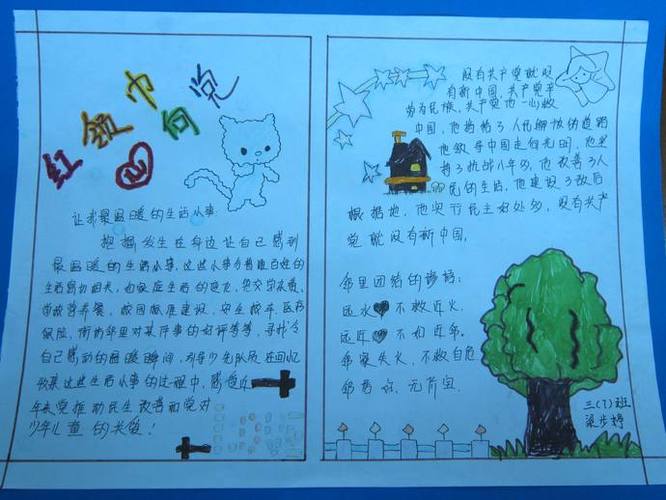 红领巾心向党
让我最温暖的生活小事:
捕捉发生在身边让自己感到
最温暖的生活小事,这些小事与普通百姓的
生活密切相关,如家庭生活的变化,
营养餐,校园标准建设,安全校车,医疗
保险,街坊邻里对某件事的好评等等,寻找令
自己感动的温暖瞬间,引导少先队员在回忆
收集这些生活小事的过程中,感受近
年来党推动民生改善和党对
少年儿童的关爱!
没有共产党就没
有新中国,共产党辛
劳为民族,共产党他一心救
中国,他指给了人民解放的道路
他领导中国走向光明,他坚
持了抗战八年多,他改善了人
民的生活,他建设了敌后
根据地,他实行民主好处多,没有共产
党就没有新中国,
邻里团结的谚语:
远水 不救近火.
远近 不如近邻.
邻家失火,不救自危
三(7)班